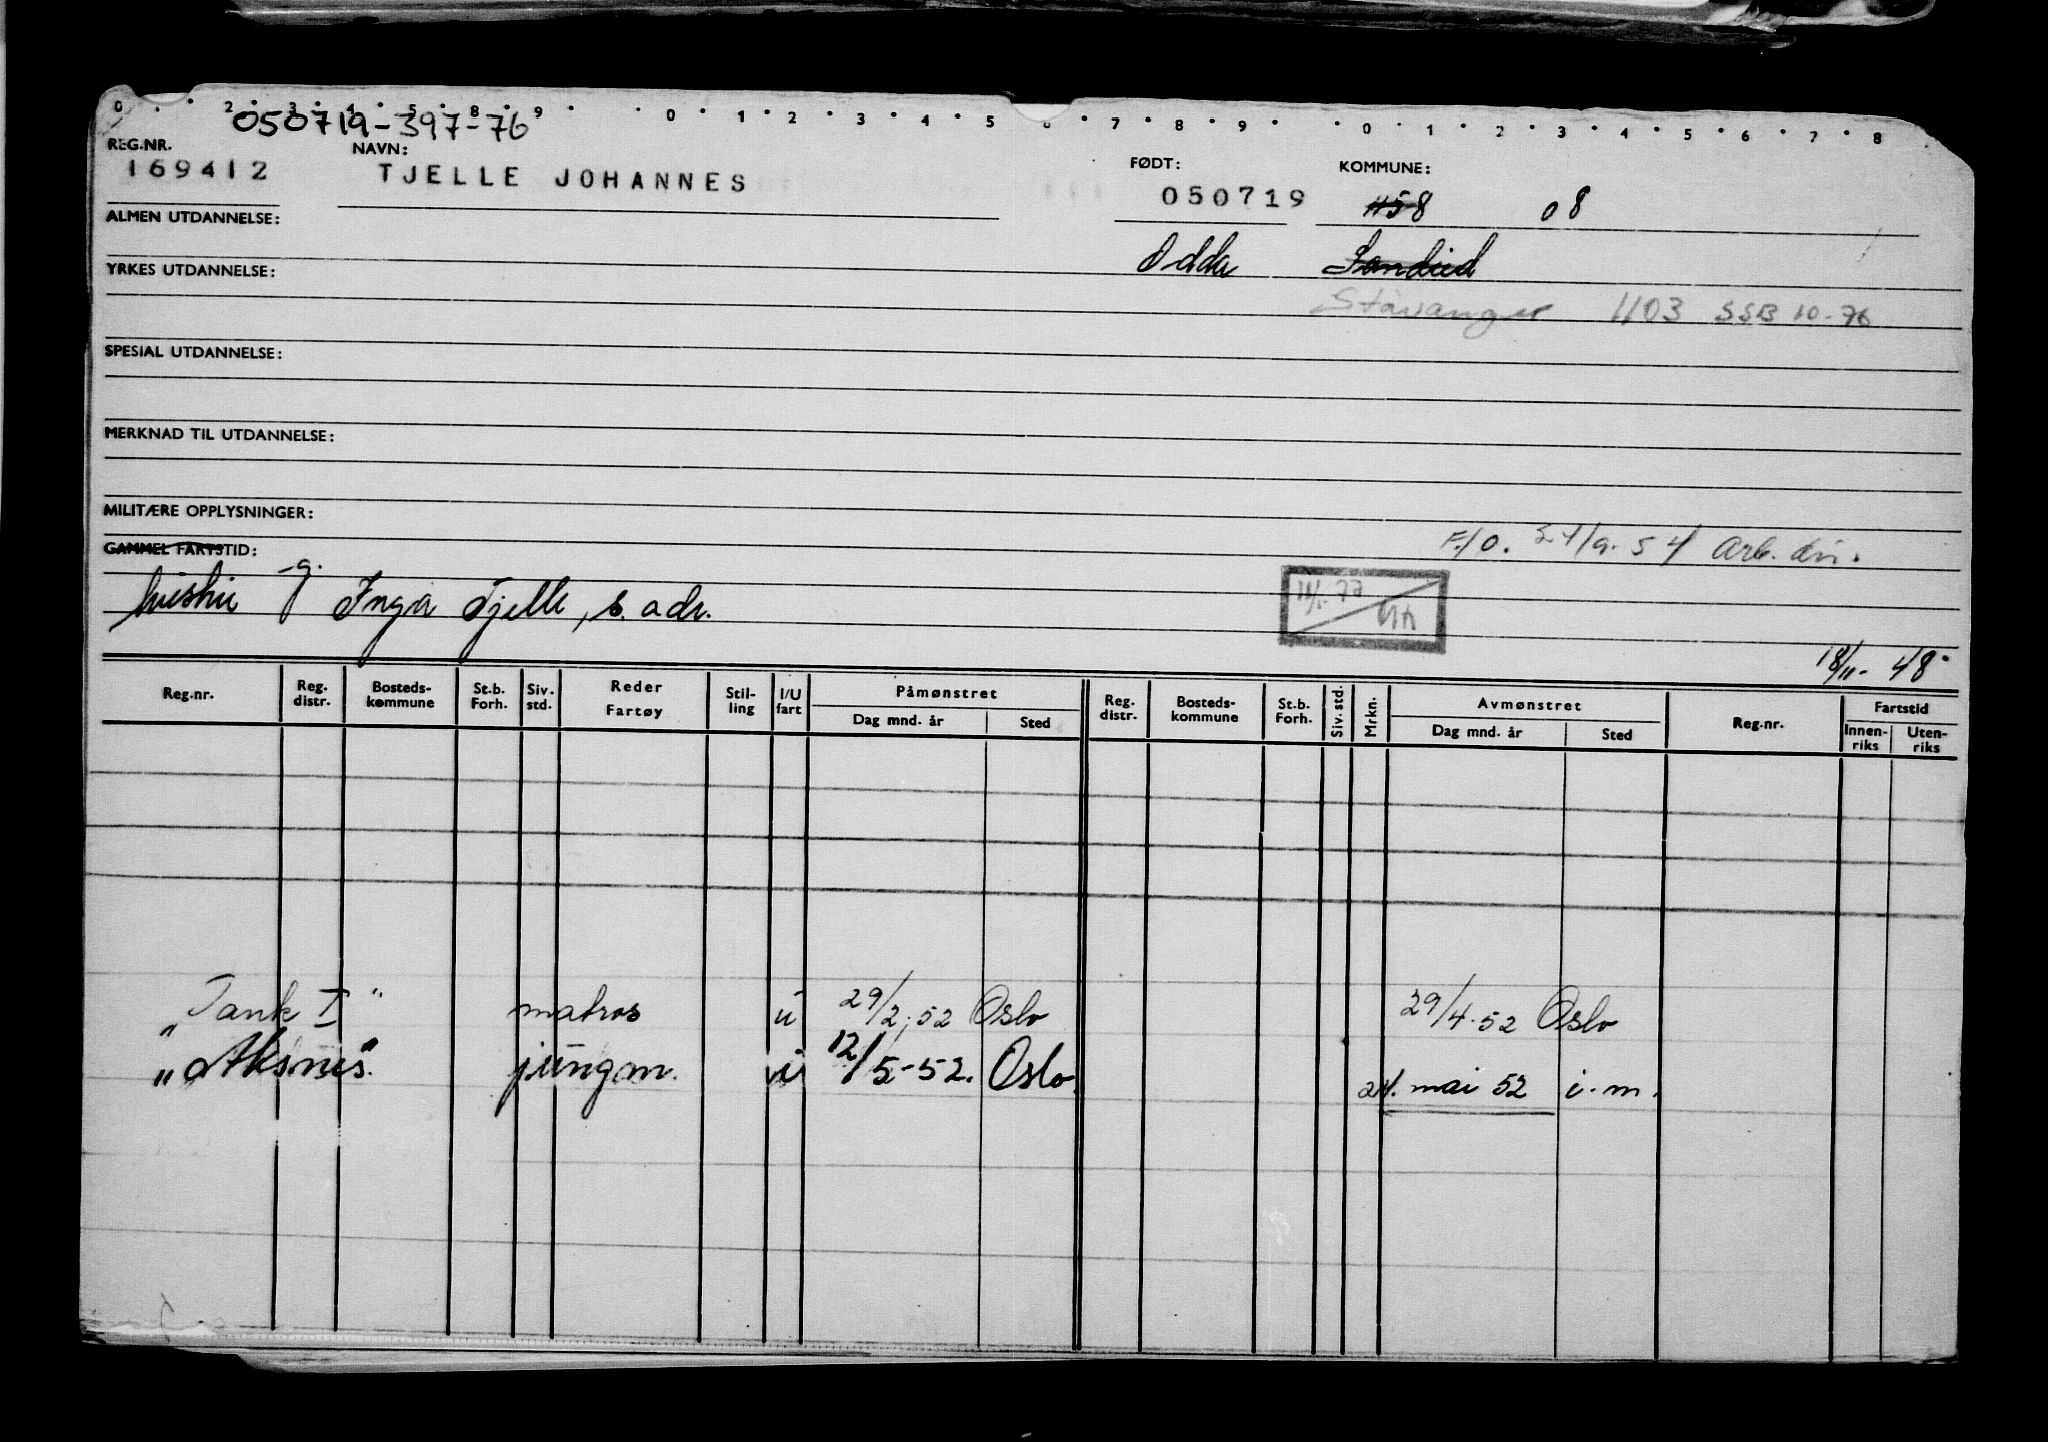 0 2 3 4 5 8 9 0 1 2 3 4 5 6 7 8 9 0 1 2 3 4 5 6 7 8
050719-397-76
REG.NR. NAVN: FØDT: KOMMUNE:
169412 TJELLE JOHANNES 050719 1158 08
ALMEN UTDANNELSE:
Odda
YRKES UTDANNELSE:
Stavanger 1103 SSB 10-76
SPESIAL UTDANNELSE:
MERKNAD TIL UTDANNELSE:
MILITÆRE OPPLYSNINGER:
F./O. 24/9.54 Arb. dir.
GAMMEL FARTSTID:
-g. Inga Tjelle, s. adr.
18/11-48
Reg.nr. Reg. distr. Bosteds-kommune St.b. Forh. Siv. std. Reder Fartøy Stil-ling I/U fart Påmønstret Dag mnd. år Sted Reg. distr. Bosteds-kommune St.b. Forh. Siv. std. Mrkn. Avmønstret Dag mnd. år Sted Reg.nr. Fartstid Innen-riks Uten-riks
"Tank I" matros u 29/2.52 Oslo 29/4.52 Oslo
"Aksnes" jungm. u 12/5-52. Oslo. 21. mai 52 i.m.